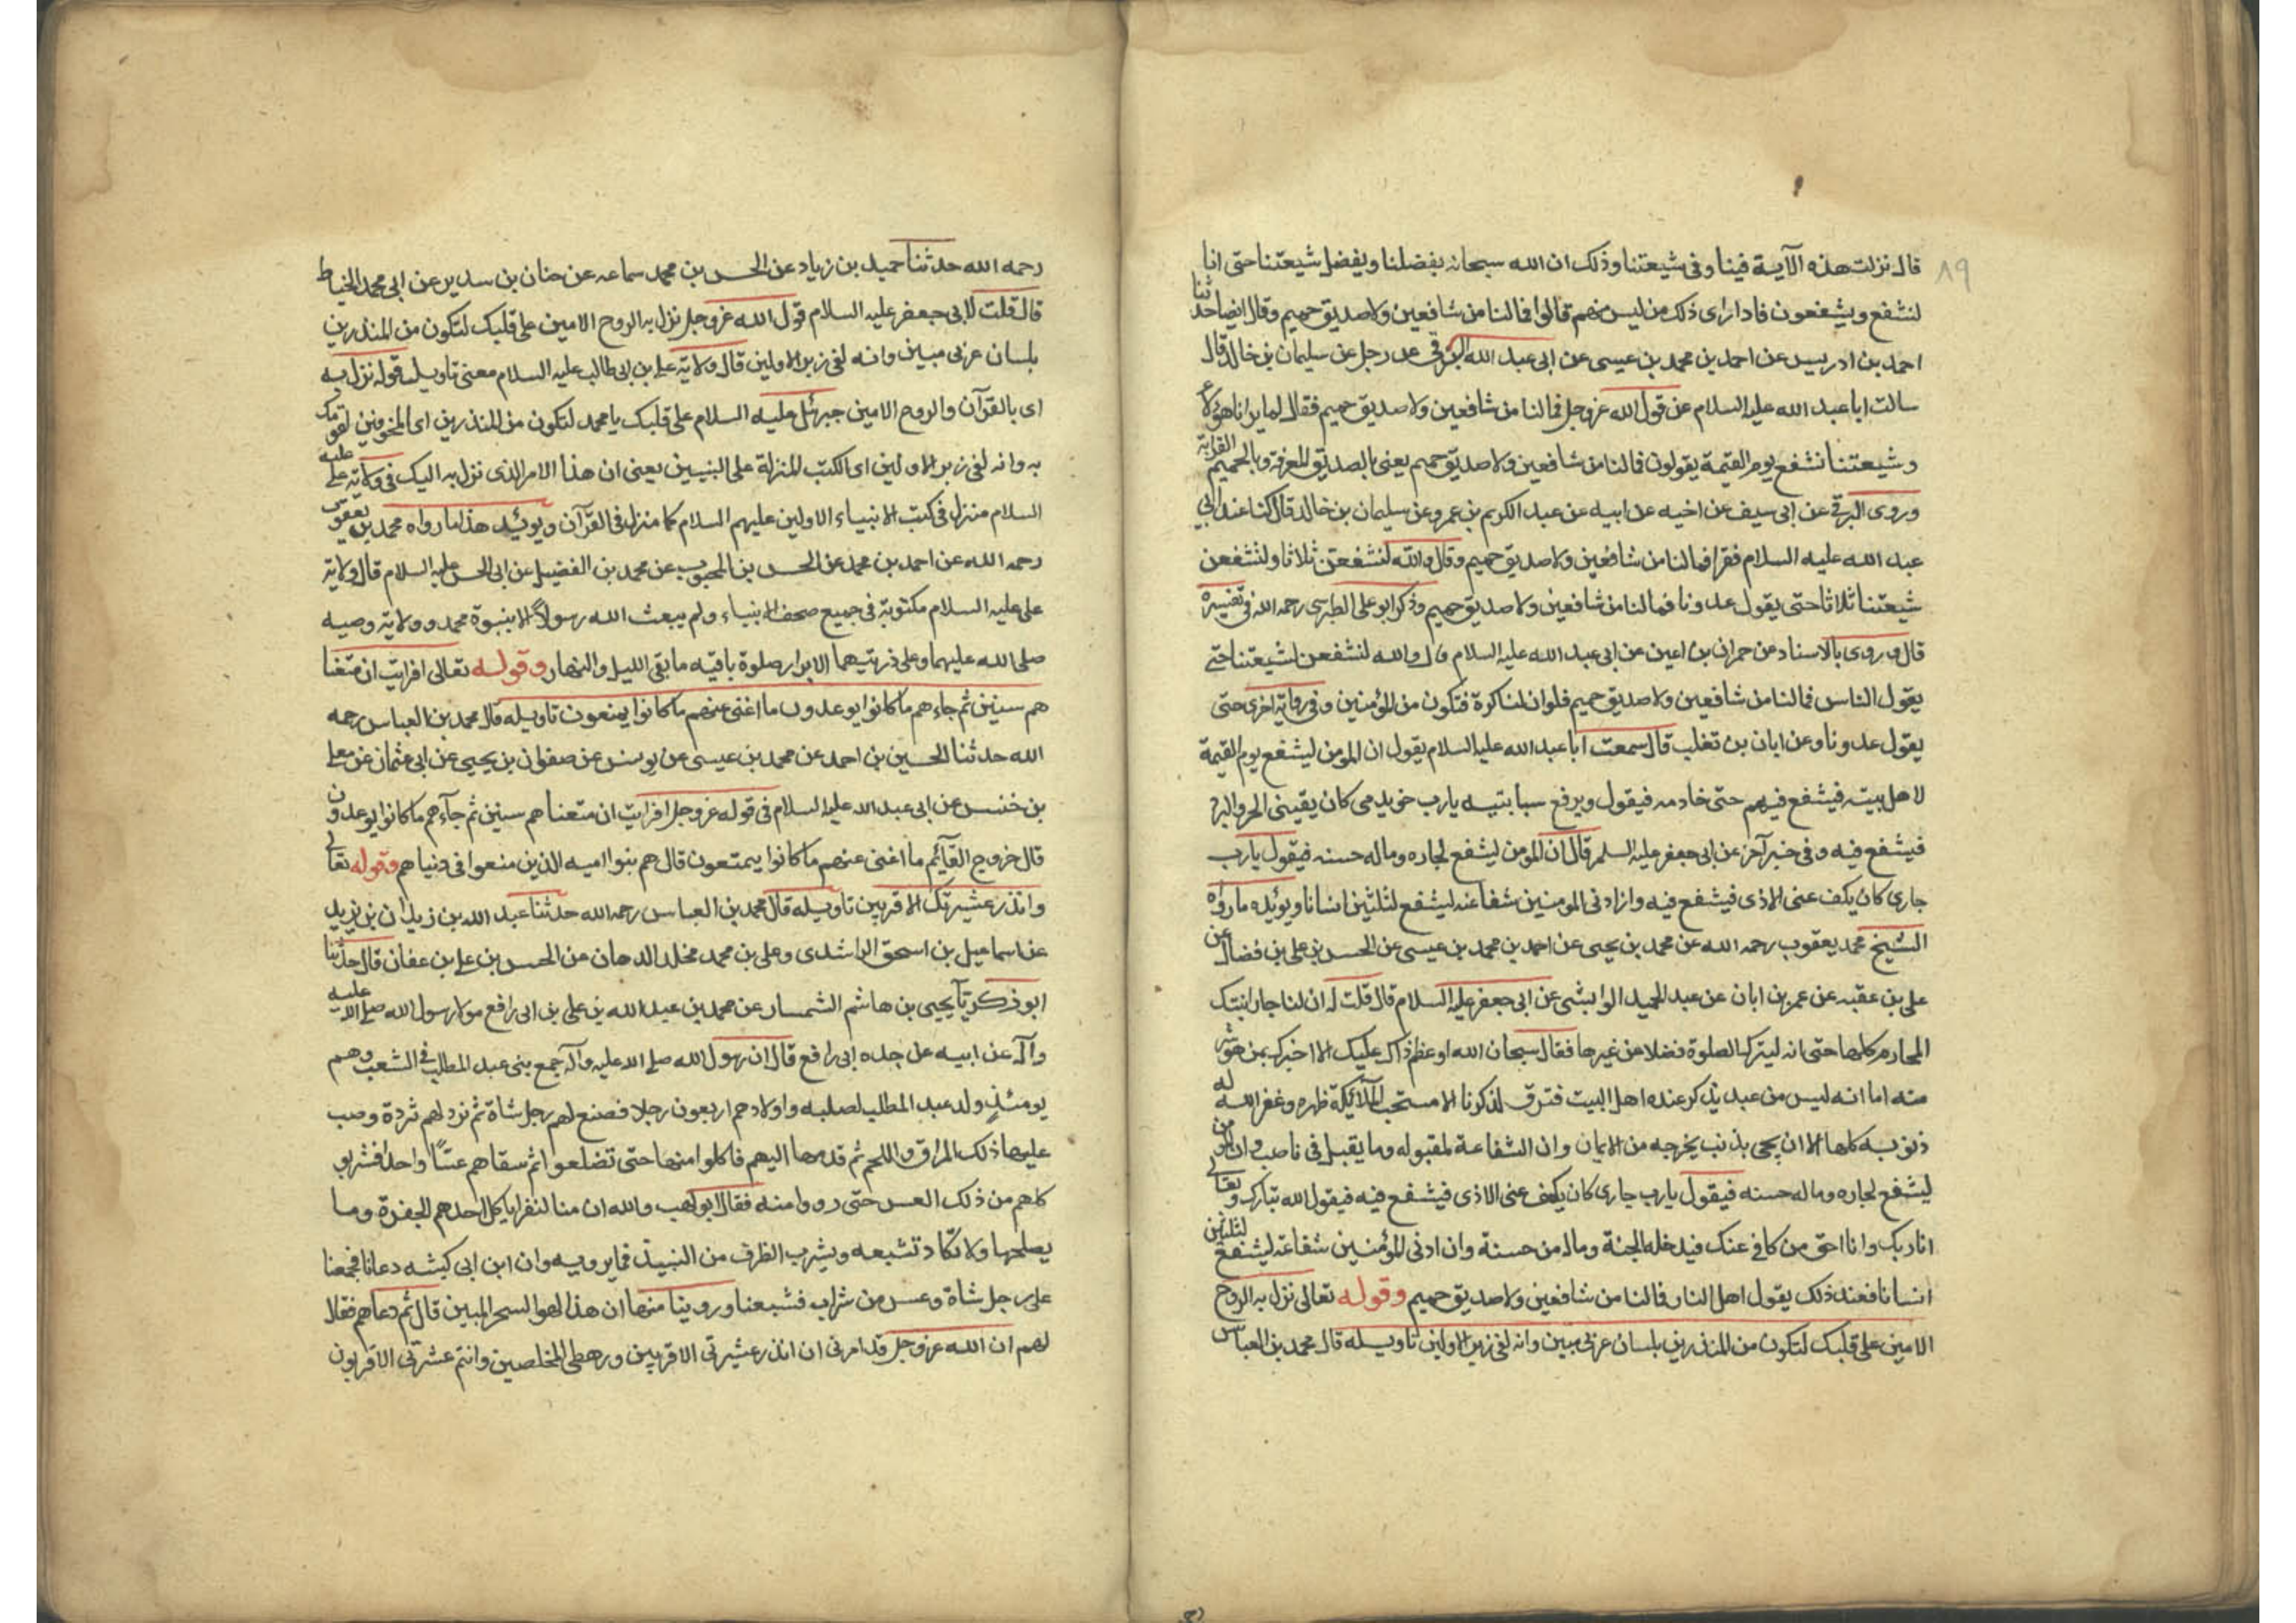 ٨٩
قال نزلت هذه الآية فينا وفى شيعتنا وذلك ان الله سبحانه يفضلنا ويفضل شيعتنا حتى انا
لنشفع ويشفعون فاذا راى ذلك من ليس منهم قالوا فما لنا من شافعين ولا صديق حميم وقال ايضا حدثنا
احمد بن ادريس عن احمد بن محمد بن عيسى عن ابى عبد الله البرقى عن رجل عن سليمان بن خالد قال
سالت ابا عبد الله عليه السلام عن قول الله عز وجل فما لنا من شافعين ولا صديق حميم فقال لما يرانا هؤلاء
وشيعتنا نشفع يوم القيمة يقولون فما لنا من شافعين ولا صديق حميم يعنى بالصديق المعرفة وبالحميم القرابة
وروى البرقى عن ابى سيف عن اخيه عن ابيه عن عبد الكريم بن عمرو عن سليمان بن خالد قال كنا عند ابى
عبد الله عليه السلام فقرا فما لنا من شافعين ولا صديق حميم وقال والله لنشفعن ثلاثا ولتشفعن
شيعتنا ثلاثا حتى يقول عدونا فما لنا من شافعين ولا صديق حميم وذكر ابو على الطبرسى رحمه الله فى تفسيره
قال وروى بالاسناد عن حمران بن اعين عن ابى عبد الله عليه السلام قال والله لنشفعن لشيعتنا حتى
يقول الناس فما لنا من شافعين ولا صديق حميم فلو ان لنا كرة فنكون من المؤمنين وفى رواية اخرى حتى
يقول عدونا وعن ابان بن تغلب قال سمعت ابا عبد الله عليه السلام يقول ان المومن ليشفع يوم القيمة
لاهل بيته فيشفع فيهم حتى خادمه فيقول ويرفع سبابتيه يارب خويدمى كان يقينى الحر والبرد
فيشفع فيه وفى خبر آخر عن ابى جعفر عليه السلم قال ان المومن ليشفع لجاره وماله حسنه فيقول يارب
جارى كان يكف عنى الاذى فيشفع فيه وان ادنى المومنين شفاعه ليشفع لثلثين انسانا ويوئده مارواه
الشيخ محمد يعقوب رحمه الله عن محمد بن يحيى عن احمد بن محمد بن عيسى عن الحسن بن على بن فضال عن
على بن عقبه عن عمر بن ابان عن عبد الحميد الوابشى عن ابى جعفر عليه السلام قال قلت له ان لنا جار انتهك
المحارم كلها حتى انه ليترك الصلوة فضلا عن غيرها فقال سبحان الله او عظم ذاك عليك الا اخبرك بمن هو شر
منه اما انه ليس من عبد يذكر عنده اهل البيت فترق لذكرنا الا مستحب الملائكة ظهره وغفر الله له
ذنوبه كلها الا ان يجى بذنب يخرجه من الايمان وان الشفاعة لمقبوله وما يقبل فى ناصب وان المومن
ليشفع لجاره وماله حسنه فيقول يارب جارى كان يكف عنى الاذى فيشفع فيه فيقول الله تبارك وتعالى
انا ربك وانا احق من كافى عنك فيدخله الجنة وماله من حسنة وان ادنى المؤمنين شفاعة ليشفع لثلثين
انسانا فعند ذلك يقول اهل النار فما لنا من شافعين ولا صديق حميم وقوله تعالى نزل به الروح
الامين على قلبك لتكون من المنذرين بلسان عربى مبين وانه لفى زبر الاولين تاويله قال محمد بن العباس
رحمه الله حدثنا حميد بن زياد عن الحسن بن محمد سماعه عن حنان بن سدير عن ابى محمد الخياط
قال قلت لابى جعفر عليه السلام قول الله عز وجل نزل به الروح الامين على قلبك لتكون من المنذرين
بلسان عربى مبين وانه لفى زبر الاولين قال ولاية على بن ابى طالب عليه السلام معنى تاويله قوله نزل به
اى بالقرآن والروح الامين جبرئل عليه السلام على قلبك يا محمد لتكون من المنذرين اى المخوفين لقومك
به وانه لفى زبر الاولين اى الكتب المنزلة على النبيين يعنى ان هذا الامر الذى نزل به اليك فى ولاية على عليه
السلام منزل فى كتب الانبياء الاولين عليهم السلام كما منزل فى القرآن ويوئد هذا مارواه محمد بن يعقوب
رحمه الله عن احمد بن محمد عن الحسن بن المحبوب عن محمد بن الفضيل عن ابى الحسن عليه السلام قال ولاية
على عليه السلام مكتوبة فى جميع صحف الانبياء ولم يبعث الله رسولا الا بنبوة محمد وولاية وصيه
صلى الله عليهما وعلى ذريتهما الابرار صلوة باقيه ما بقى الليل والنهار وقوله تعالى افرايت ان متعنا
هم سنين ثم جاءهم ما كانوا يوعدون ما اغنى عنهم ما كانوا يمتعون تاويله قال محمد بن العباس رحمه
الله حدثنا الحسين بن احمد عن محمد بن عيسى عن يونس عن صفوان بن يحيى عن ابى عثمان عن معلى
بن خنس عن ابى عبد الله عليه السلام فى قوله عز وجل افرايت ان متعنا هم سنين ثم جآءهم ما كانوا يوعدون
قال خروج القآئم ما اغنى عنهم ما كانوا يمتعون قال هم بنوا اميه الذين متعوا فى دنياهم وقوله تعالى
وانذر عشيرتك الاقربين تاويله قال محمد بن العباس رحمه الله حدثنا عبد الله بن زيدان بن يزيد
عن اسماعيل بن اسحق الراشدى وعلى بن محمد مخلد الدهان عن الحسن بن على بن عفان قال حدثنا
ابو ذكريآ يحيى بن هاشم الشمسار عن محمد بن عبد الله بن على بن ابى رافع مولا رسول الله صلى الله عليه
وآله عن ابيه عن جده ابى رافع قال ان رسول الله صلى الله عليه وآله جمع بنى عبد المطلب فى الشعب وهم
يومئذ ولد عبد المطلب لصلبه واولادهم اربعون رجلا فصنع لهم رجل شاة ثم نزد لهم ثردة وصب
عليها ذلك المراق واللحم ثم قدمها اليهم فاكلوا منها حتى تضلعوا ثم سقاهم عسًا واحدا فشربو
كلهم من ذلك العس حتى رووا منه فقال ابو لهب والله ان منا لنفرا ياكل احدهم الجفرة وما
يصلحها ولا تكاد تشبعه ويشرب الظرف من النبيذ فما يرويه وان ابن ابى كبشه دعانا فجمعنا
على رجل شاة وعس من شراب فشبعنا وروينا منها ان هذا لهو السحر المبين قال ثم دعاهم فقال
لهم ان الله عز وجل قد امرنى ان انذر عشيرتى الاقربين ورهطى المخلصين وانتم عشرتى الاقربون